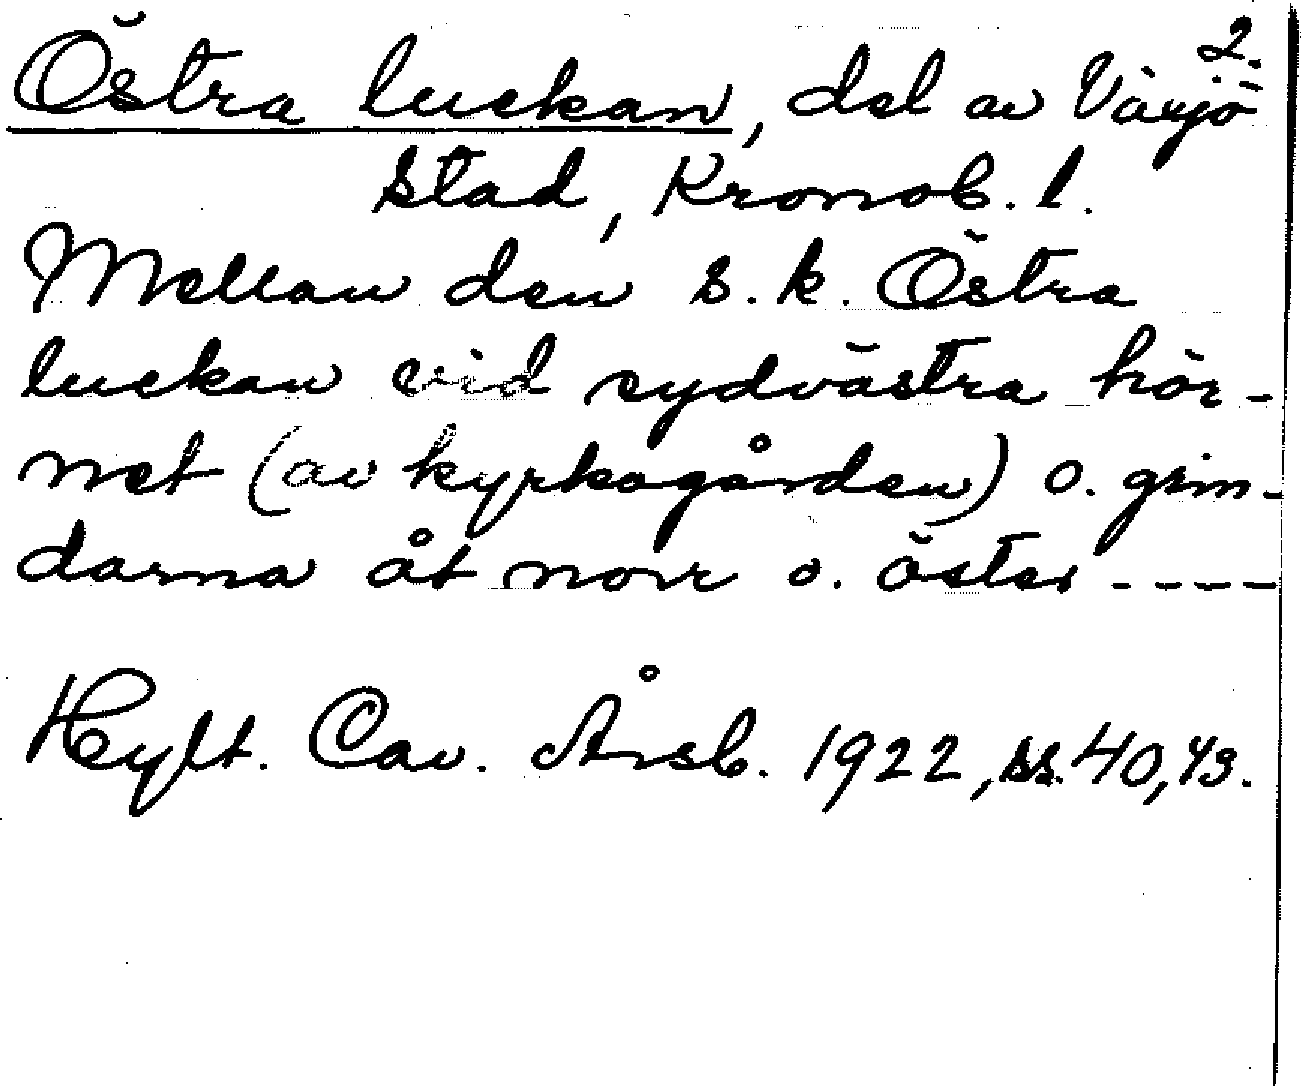 2.
Östra luckan, del av Växjö
stad, Kronob. l.
Mellan den s. k. Östra
luckan vid sydvästra hör-
net (av kyrkogården) o. grin-
darna åt norr o. öster ----
Hylt. Cav. Årsb. 1922, ss. 40, 43.